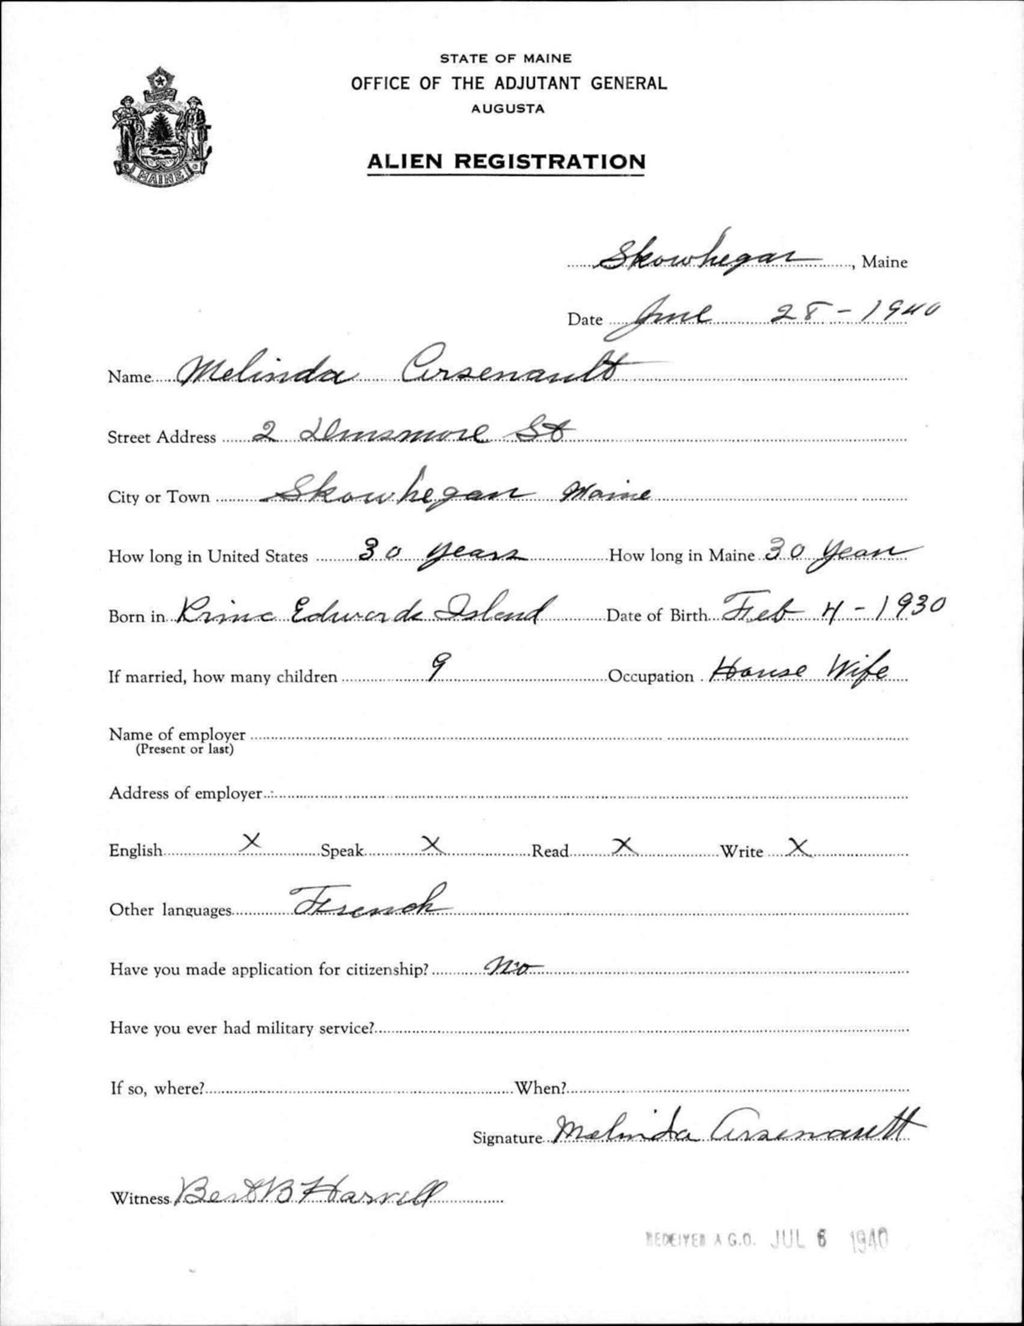 STATE OF MAINE
OFFICE OF THE ADJUTANT GENERAL
AUGUSTA
ALIEN REGISTRATION
MAINE
Skowhegan, Maine
Date June 28 - 1940
Name Melinda Arsenault
Street Address 2 Dinsmore St
City or Town Skowhegan Maine
How long in United States 30 years How long in Maine 30 Years
Born in Prince Edwards Island Date of Birth Feb 4 - 1930
If married, how many children 9 Occupation House Wife
Name of employer
(Present or last)
Address of employer
English X Speak X Read X Write X
Other languages French
Have you made application for citizenship? No
Have you ever had military service?
If so, where? When?
Signature Melinda Arsenault
Witness Bert B Harvell
RECEIVED A.G.O. JUL 6 1940